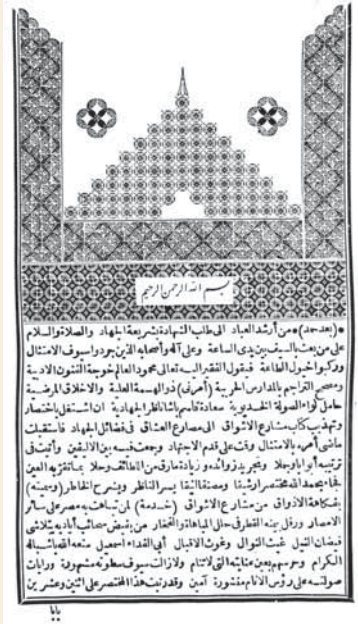 بسم الله الرحمن الرحيم
(بعد حمد) من أرشد العباد الى طلب الشهادة بشريعة الجهاد والصلاة والسلام
على من بعث بالسيف بين يدى الساعة وعلى آله وأصحابه الذين جردوا سيوف الامتثال
وركبوا خيول الطاعة فيقول الفقير الى الله تعالى محمود العالم خوجة الفنون الادبية
ومصحح التراجم بالمدارس الحربية (أمرنى) ذو الهمة العلية والاخلاق المرضية
حامل لواء الصولة الخديوية سعادة قاسم باشا ناظر الجهادية ان اشتغل باختصار
وتهذيب كتاب مشارع الاشواق الى مصارع العشاق فى فضائل الجهاد فاستقبلت
ماضى أمره بالامتثال وقت على قدم الاجتهاد وجمعت فيه بين الاليفين وأثبت فى
ترتيبه أبوابا وجلا وبتجريد زوائده وزيادة مارق من الطائف وحلا بما تقر به العين
فجاء بحمد الله مختصرا رشيقا ومصنفا أنيقا يسر الناظر ويشرح الخاطر (وسميته)
بفكاهة الاذواق من مشارع الاشواق (خدمة) لمن تباهت به مصر على سائر
الامصار ورفل بيمنه القطر فى حلل المباهاة والفخار من بفيض سحائب أياديه يتلاشى
فيضان النيل غيث النوال وغوث الاقبال أبى الفداء اسمعيل متعه الله بأشباله
الكرام وحرسهم بعين عنايته التى لا تنام ولا زالت سيوف سطوته مشهورة ورايات
صولته على رؤس الانام منشورة آمين وقد رتبت هذا المختصر على اثنين وعشرين
بابا